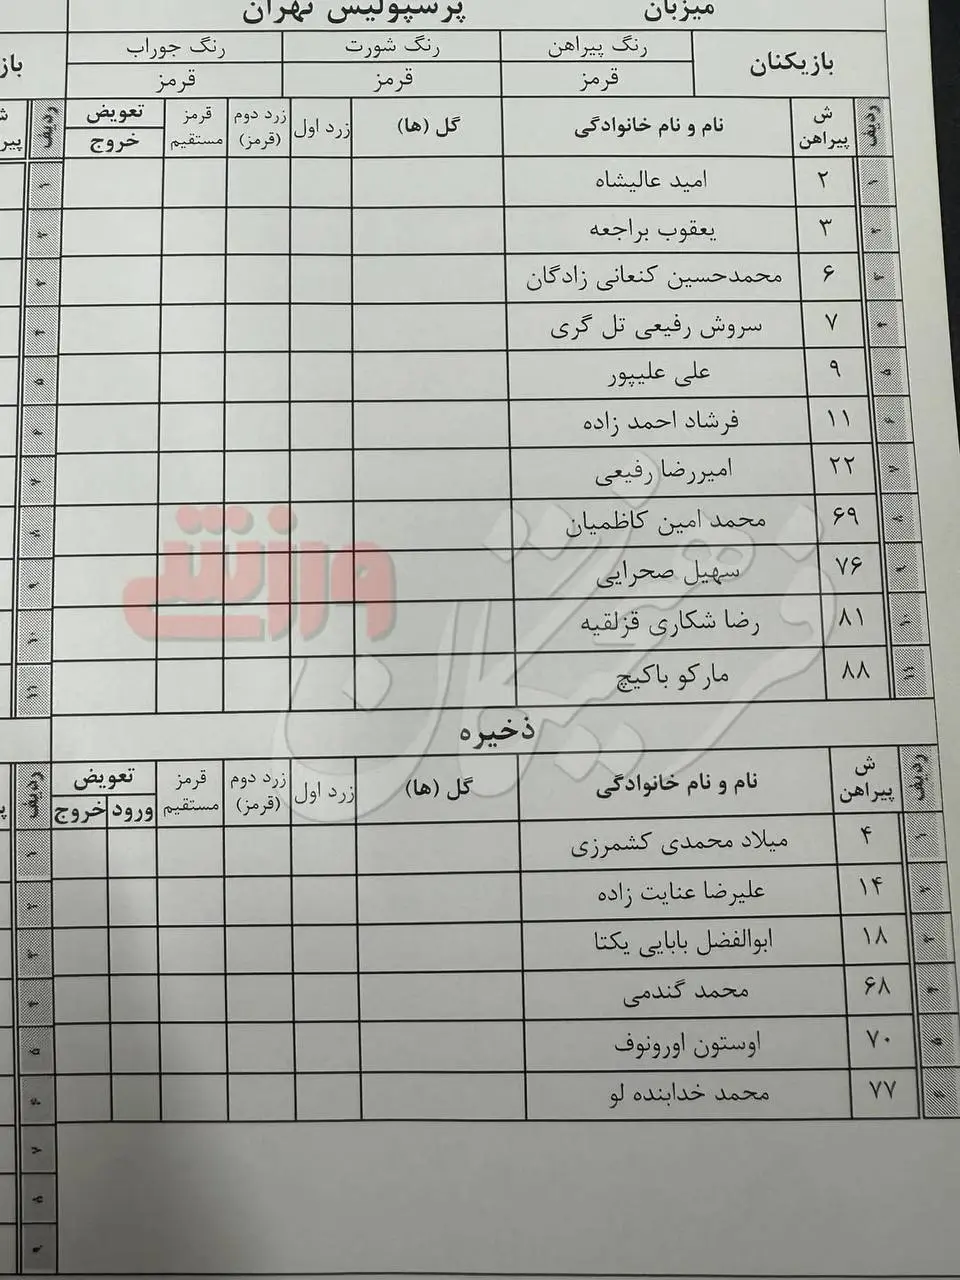 میزبان پرسپولیس تهران
بازیکنان رنگ پیراهن رنگ شورت رنگ جوراب
قرمز قرمز قرمز
ردیف ش پیراهن نام و نام خانوادگی گل (ها) زرد اول زرد دوم (قرمز) قرمز مستقیم تعویض خروج ردیف
۱ ۲ امید عالیشاه ۱
۲ ۳ یعقوب براجعه ۲
۳ ۶ محمدحسین کنعانی زادگان ۳
۴ ۷ سروش رفیعی تل گری ۴
۵ ۹ علی علیپور ۵
۶ ۱۱ فرشاد احمد زاده ۶
۷ ۲۲ امیررضا رفیعی ۷
۸ ۶۹ محمد امین کاظمیان ۸
۹ ۷۶ سهیل صحرایی ۹
۱۰ ۸۱ رضا شکاری قزلقیه ۱۰
۱۱ ۸۸ مارکو باکیچ ۱۱
فرهیختگان ورزشی
ذخیره
ردیف ش پیراهن نام و نام خانوادگی گل (ها) زرد اول زرد دوم (قرمز) قرمز مستقیم تعویض ورود خروج ردیف
۱ ۴ میلاد محمدی کشمرزی ۱
۲ ۱۴ علیرضا عنایت زاده ۲
۳ ۱۸ ابوالفضل بابایی یکتا ۳
۴ ۶۸ محمد گندمی ۴
۵ ۷۰ اوستون اورونوف ۵
۶ ۷۷ محمد خدابنده لو ۶
۷
۸
۹